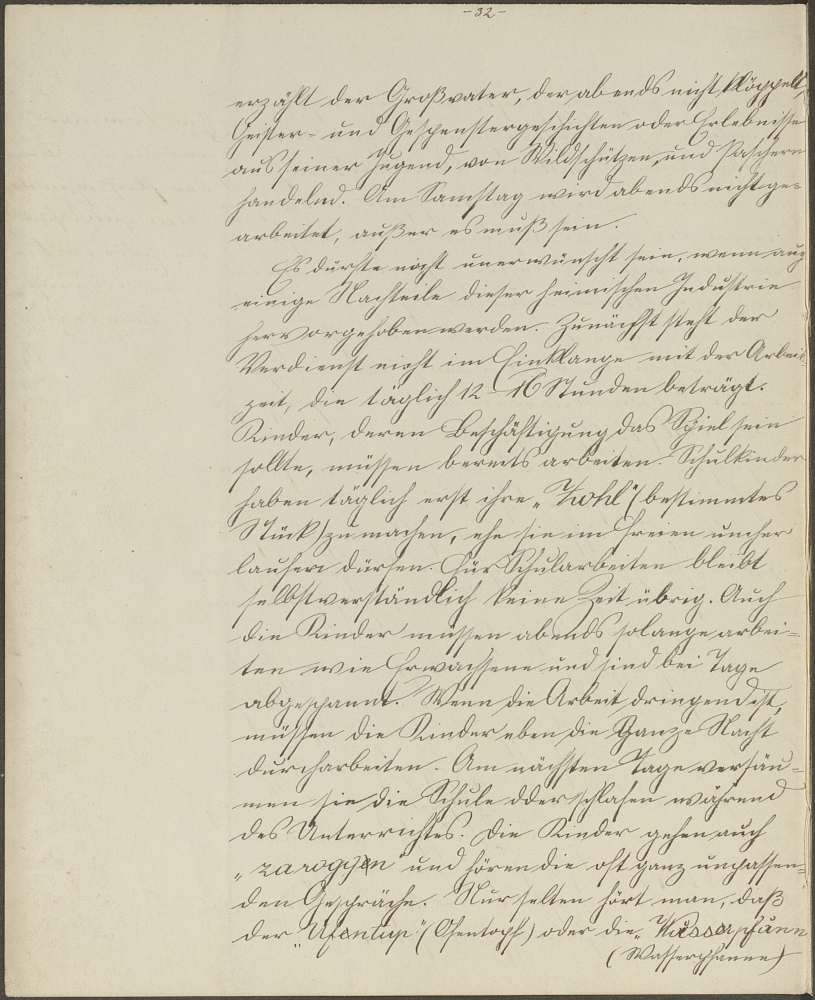 -32-
erzählt der Großvater, der abends nicht klöppelt,
Geister- und Gespenstergeschichten oder Erlebnisse
aus seiner Jugend, von Wildschützen und Paschern
handelnd. Am Samstag wird abends nicht ge-
arbeitet, außer es muß sein.
Es dürfte nicht unerwünscht sein, wenn auch
einige Nachteile dieser heimischen Industrie
hervorgehoben werden. Zunächst steht der
Verdienst nicht im Einklange mit der Arbeits-
zeit, die täglich 12-16 Stunden beträgt.
Kinder, deren Beschäftigung das Spiel sein
sollte, müssen bereits arbeiten. Schulkinder
haben täglich erst ihre „Zohl" (bestimmtes
Stück) zu machen, ehe sie im Freien umher
laufen dürfen. Für Schularbeiten bleibt
selbstverständlich keine Zeit übrig. Auch
die Kinder müssen abends solange arbei-
ten wie Erwachsene und sind bei Tage
abgespannt. Wenn die Arbeit dringend ist,
müssen die Kinder eben die ganze Nacht
durcharbeiten. Am nächsten Tage versäu-
men sie die Schule oder schlafen während
des Unterrichtes. Die Kinder gehen auch
und hören die oft ganz unpassen-
den Gespräche. Nur selten hört man, daß
der "Ufentup" (Ofentopf) oder die „Wasserpfånn
(Wasserpfanne)